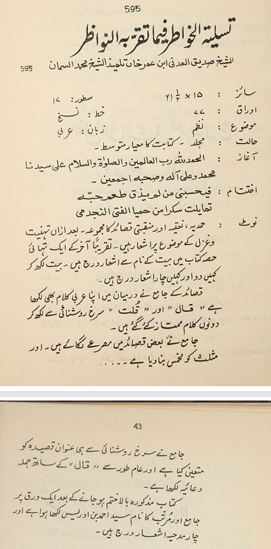 595
تسلية الخواطر فيما تقر به النواظر
الشيخ صديق المدنی ابن عمر خان تلمیذ الشیخ محمد السمان
595
سائز : ۱۵ × ۲۱ ۱/۲ سطور : ۱۷
اوراق : ۷۷ خط : نسخ
موضوع : نظم زبان : عربی
حالت : مجلد ۔ کتابت کا معیار متوسط ۔
آغاز : الحمد لله رب العالمین والصلوٰة والسلام علی سیدنا
محمد وعلی آله وصحبه اجمعین ۔
اختتام : فیحسبنی من لم یذق طعم حبه
تمایلت سکرا من حمیا الفتی النجدی
نوٹ : حمدیہ، نعتیہ اور منقبتی قصائد کا مجموعہ ۔ بعد ازاں تہنیت
وغزل کے موضوع پر اشعار ہیں ۔ تقریباً آخر کے ایک تہائی
حصہ کتاب میں بیت کے نام سے اشعار درج ہیں ۔ بیت لکھ کر
کہیں دو اور کہیں چار اشعار درج ہیں ۔
قصائد کے جامع نے درمیان میں اپنا عربی کلام بھی لکھا
ہے " قال " اور " قلت " سرخ روشنائی سے لکھ کر
دونوں کلام ممتاز کئے گئے ہیں ۔
جامع نے بعض قصائد میں مصرعے لگائے ہیں ۔ اور
مثلث کو مخمس بنا دیا ہے ۔ ....
43
جامع نے سرخ روشنائی سے ہی عنوان قصیدہ کو
متعین کیا ہے اور عام طور سے " قال " کے ساتھ جملہ
دعائیہ لکھا ہے ۔
کتاب مذکورہ بالا ختم ہو جانے کے بعد ایک ورق پر
جامع اور مرتب کا نام سید احمد بن ادریس لکھا ہوا ہے اور
چار مدحیہ اشعار درج ہیں ۔